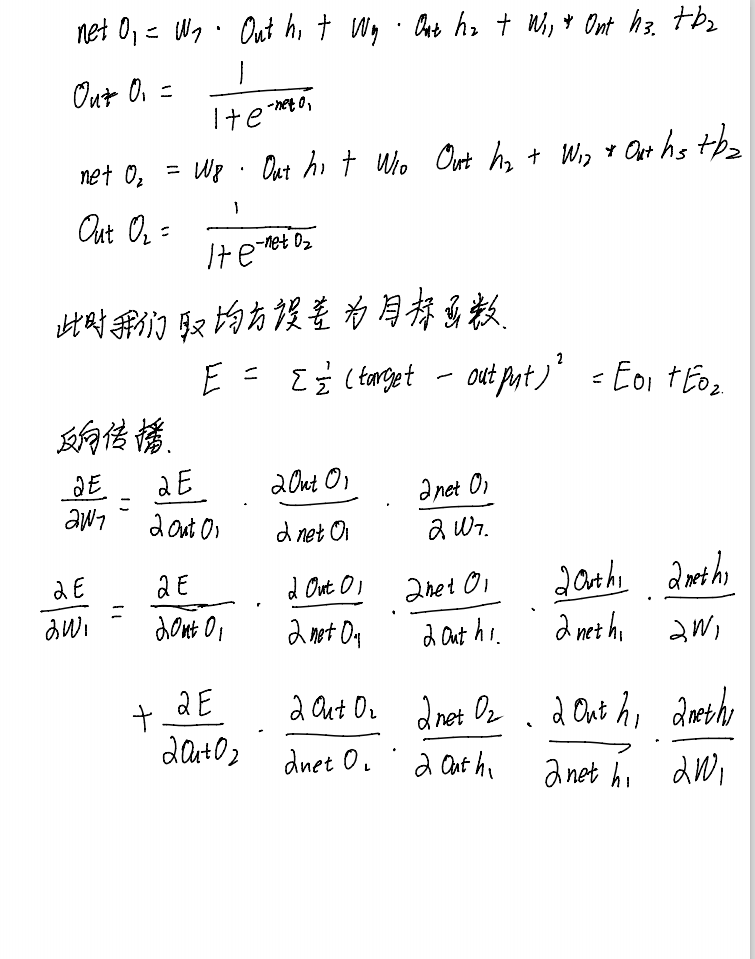 net O₁ = W₇ · Out h₁ + W₉ · Out h₂ + W₁₁ * Out h₃. + b₂
Out O₁ = 1 / (1 + e^(-net O₁))
net O₂ = W₈ · Out h₁ + W₁₀ Out h₂ + W₁₂ * Out h₃ + b₂
Out O₂ = 1 / (1 + e^(-net O₂))
此时我们取均方误差为目标函数.
E = Σ ½ (target - output)² = E₀₁ + E₀₂.
反向传播.
∂E/∂W₇ = ∂E/∂Out O₁ · ∂Out O₁/∂net O₁ · ∂net O₁/∂W₇.
∂E/∂W₁ = ∂E/∂Out O₁ · ∂Out O₁/∂net O₁ · ∂net O₁/∂Out h₁. · ∂Out h₁/∂net h₁ · ∂net h₁/∂W₁
+ ∂E/∂Out O₂ · ∂Out O₂/∂net O₂ · ∂net O₂/∂Out h₁ · ∂Out h₁/∂net h₁ · ∂net h₁/∂W₁